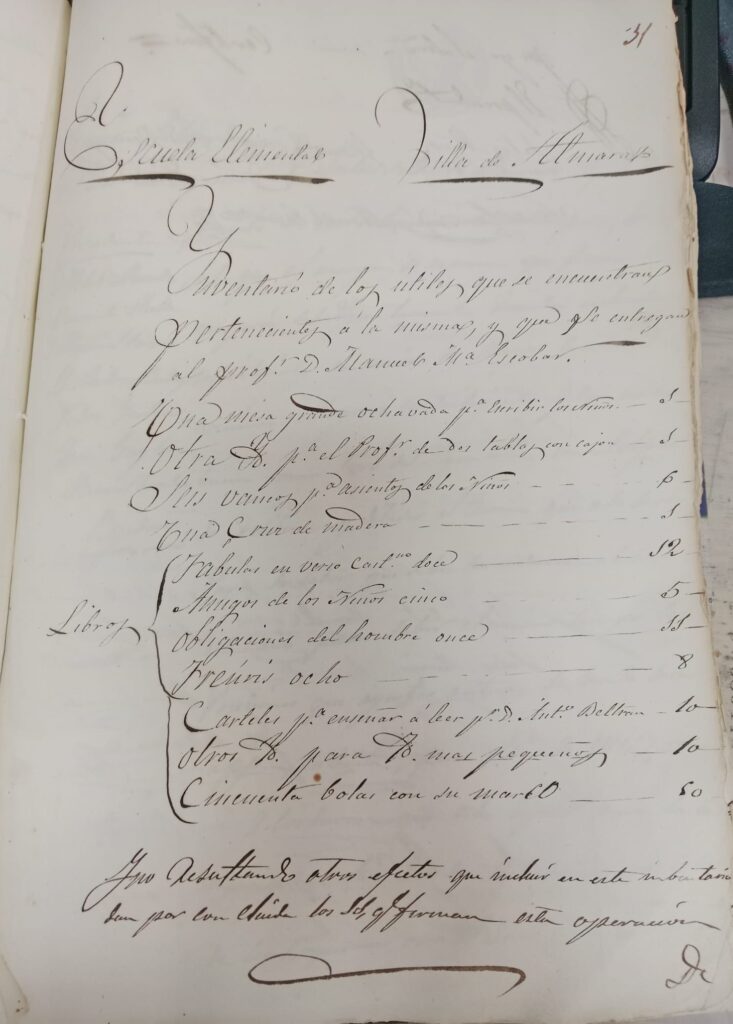 31
Escuela Elemental Villa de Almaraz
Ynventario de los útiles que se encuentran
pertenecientes á la misma, y que se entregan
al prof.r D. Manuel M.a Escobar.
Una mesa grande ochavada p.a Escribir los Niños — 1
Otra Yd. p.a el Prof.r de dos tablas con cajon — 1
Seis vancos p.a asientos de los Niños — 6
Una Cruz de madera — 1
Libros
Fabulas en verso Cast.no doce — 12
Amigos de los Niños cinco — 5
Obligaciones del hombre once — 11
Freúris ocho — 8
Carteles p.a enseñar á leer p.r D. Ant.o Beltran — 10
Otros Yd. para Yd. mas pequeños — 10
Cincuenta bolas con su mar60 — 50
Y no Resultando otros efectos que incluir en este inbentario
dan por concluida los SS. q.e firman esta operación
De